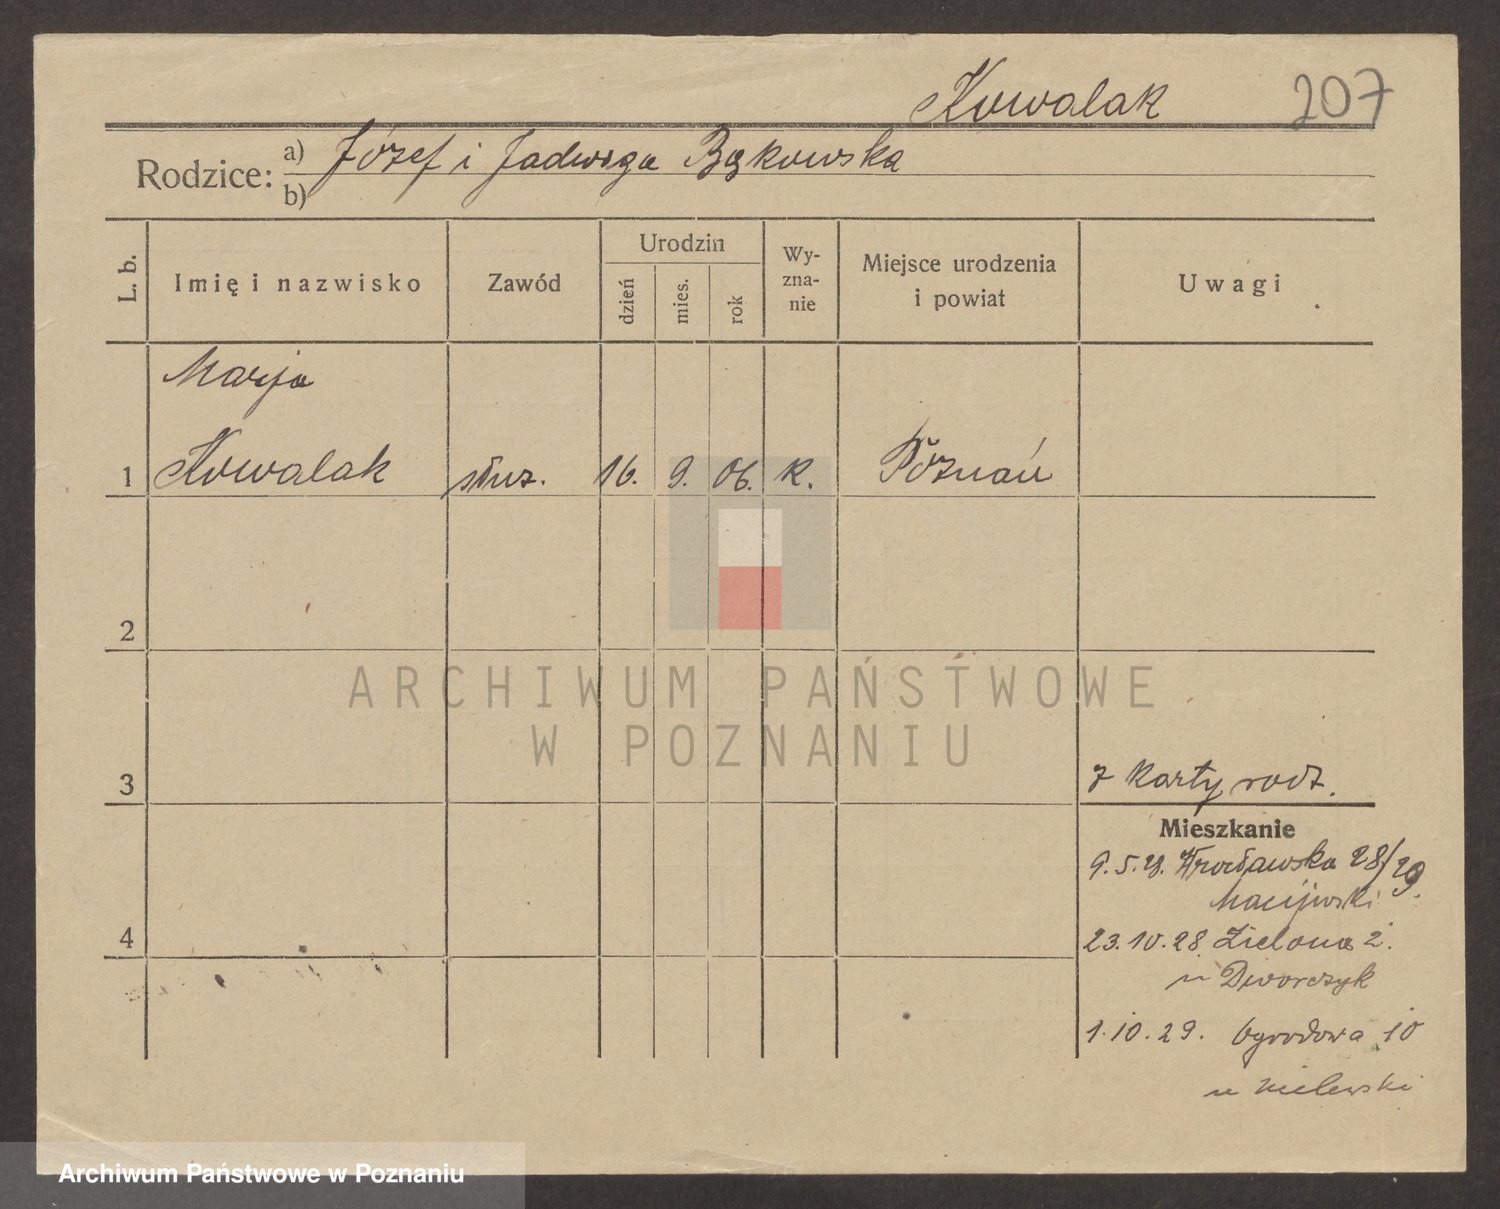 Kowalak 207
Rodzice: a) Józef i Jadwiga Bąkowska
b)
L. b.
Imię i nazwisko
Zawód
Urodzin
dzień
mies.
rok
Wy-
zna-
nie
Miejsce urodzenia
i powiat
Uwagi
Marja
1 Kowalak służ. 16. 9. 06. K. Poznań
2
ARCHIWUM PAŃSTWOWE
W POZNANIU
3
z karty rodz.
Mieszkanie
9.5.28. Wrocławska 28/29.
Macijewski
4
23.10.28 Zielona 2.
u Dworczyk
1.10.29. Ogrodowa 10
u
Archiwum Państwowe w Poznaniu